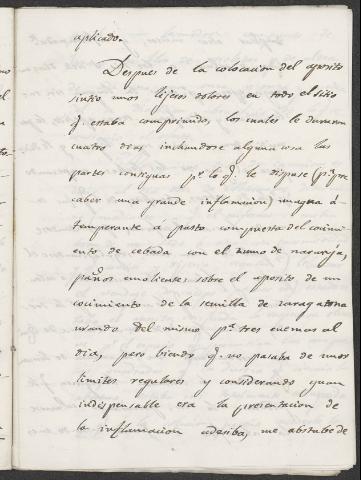 aplicado.
Despues de la colocacion del aposito
sintio unos lijeros dolores en todo el sitio
q. estaba comprimido, los cuales le duraron
cuatro dias inchandose alguna cosa las
partes contiguas p.r lo q. le dispuse (p.a pre
caber una grande inflamacion) una agua á
temperante á pasto compuesta del cocimi
ento de cebada con el zumo de naranja,
paños emolientes sobre el aposito de un
cocimiento de la semilla de zaragatona
usando del mismo p.a tres enemas al
dia, pero biendo q. no pasaba de unos
limites regulares y considerando quan
indispensable era la presentacion de
la inflamacion adesiba, me abstube de